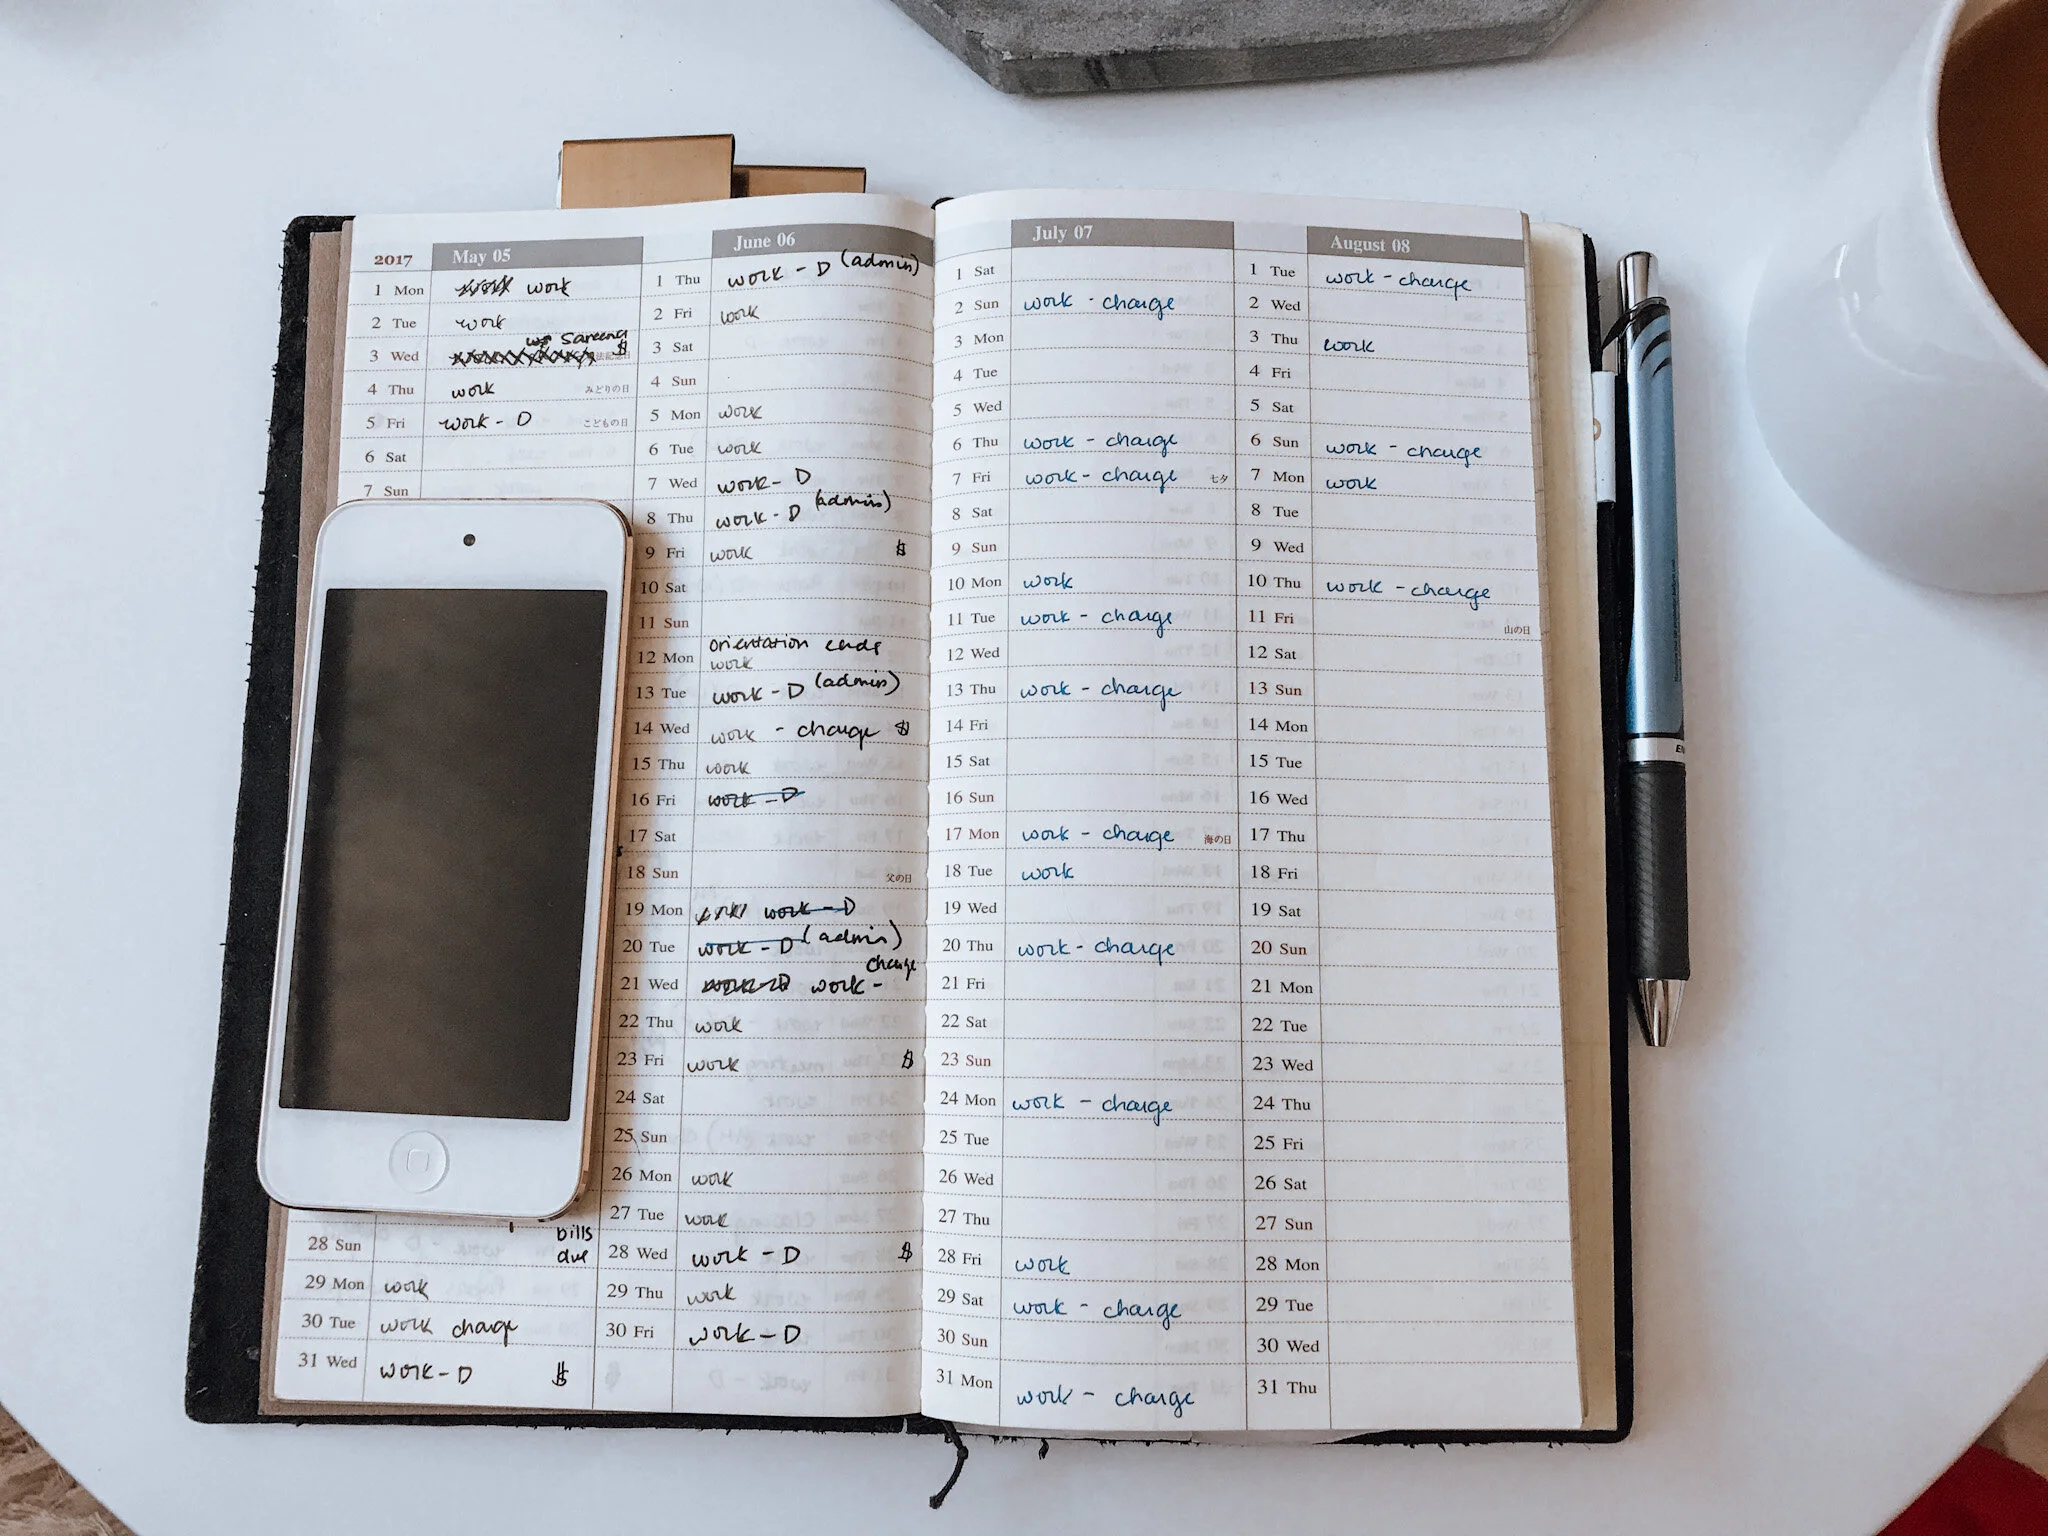 2017 May 05
1 Mon work work
2 Tue work
3 Wed Sareena $
4 Thu work みどりの日
5 Fri work - D こどもの日
6 Sat
7 Sun
28 Sun bills due
29 Mon work
30 Tue work charge
31 Wed work - D $
June 06
1 Thu work - D (admin)
2 Fri work
3 Sat
4 Sun
5 Mon work
6 Tue work
7 Wed work - D
8 Thu work - D (admin)
9 Fri work $
10 Sat
11 Sun
12 Mon orientation ends
work
13 Tue work - D (admin)
14 Wed work - charge $
15 Thu work
16 Fri work - D
17 Sat
18 Sun 父の日
19 Mon work work - D
20 Tue work - D (admin)
21 Wed work - D work - charge
22 Thu work
23 Fri work $
24 Sat
25 Sun
26 Mon work
27 Tue work
28 Wed work - D $
29 Thu work
30 Fri work - D
July 07
1 Sat
2 Sun work - charge
3 Mon
4 Tue
5 Wed
6 Thu work - charge
7 Fri work - charge 七夕
8 Sat
9 Sun
10 Mon work
11 Tue work - charge
12 Wed
13 Thu work - charge
14 Fri
15 Sat
16 Sun
17 Mon work - charge 海の日
18 Tue work
19 Wed
20 Thu work - charge
21 Fri
22 Sat
23 Sun
24 Mon work - charge
25 Tue
26 Wed
27 Thu
28 Fri work
29 Sat work - charge
30 Sun
31 Mon work - charge
August 08
1 Tue work - charge
2 Wed
3 Thu work
4 Fri
5 Sat
6 Sun work - charge
7 Mon work
8 Tue
9 Wed
10 Thu work - charge
11 Fri 山の日
12 Sat
13 Sun
14 Mon
15 Tue
16 Wed
17 Thu
18 Fri
19 Sat
20 Sun
21 Mon
22 Tue
23 Wed
24 Thu
25 Fri
26 Sat
27 Sun
28 Mon
29 Tue
30 Wed
31 Thu